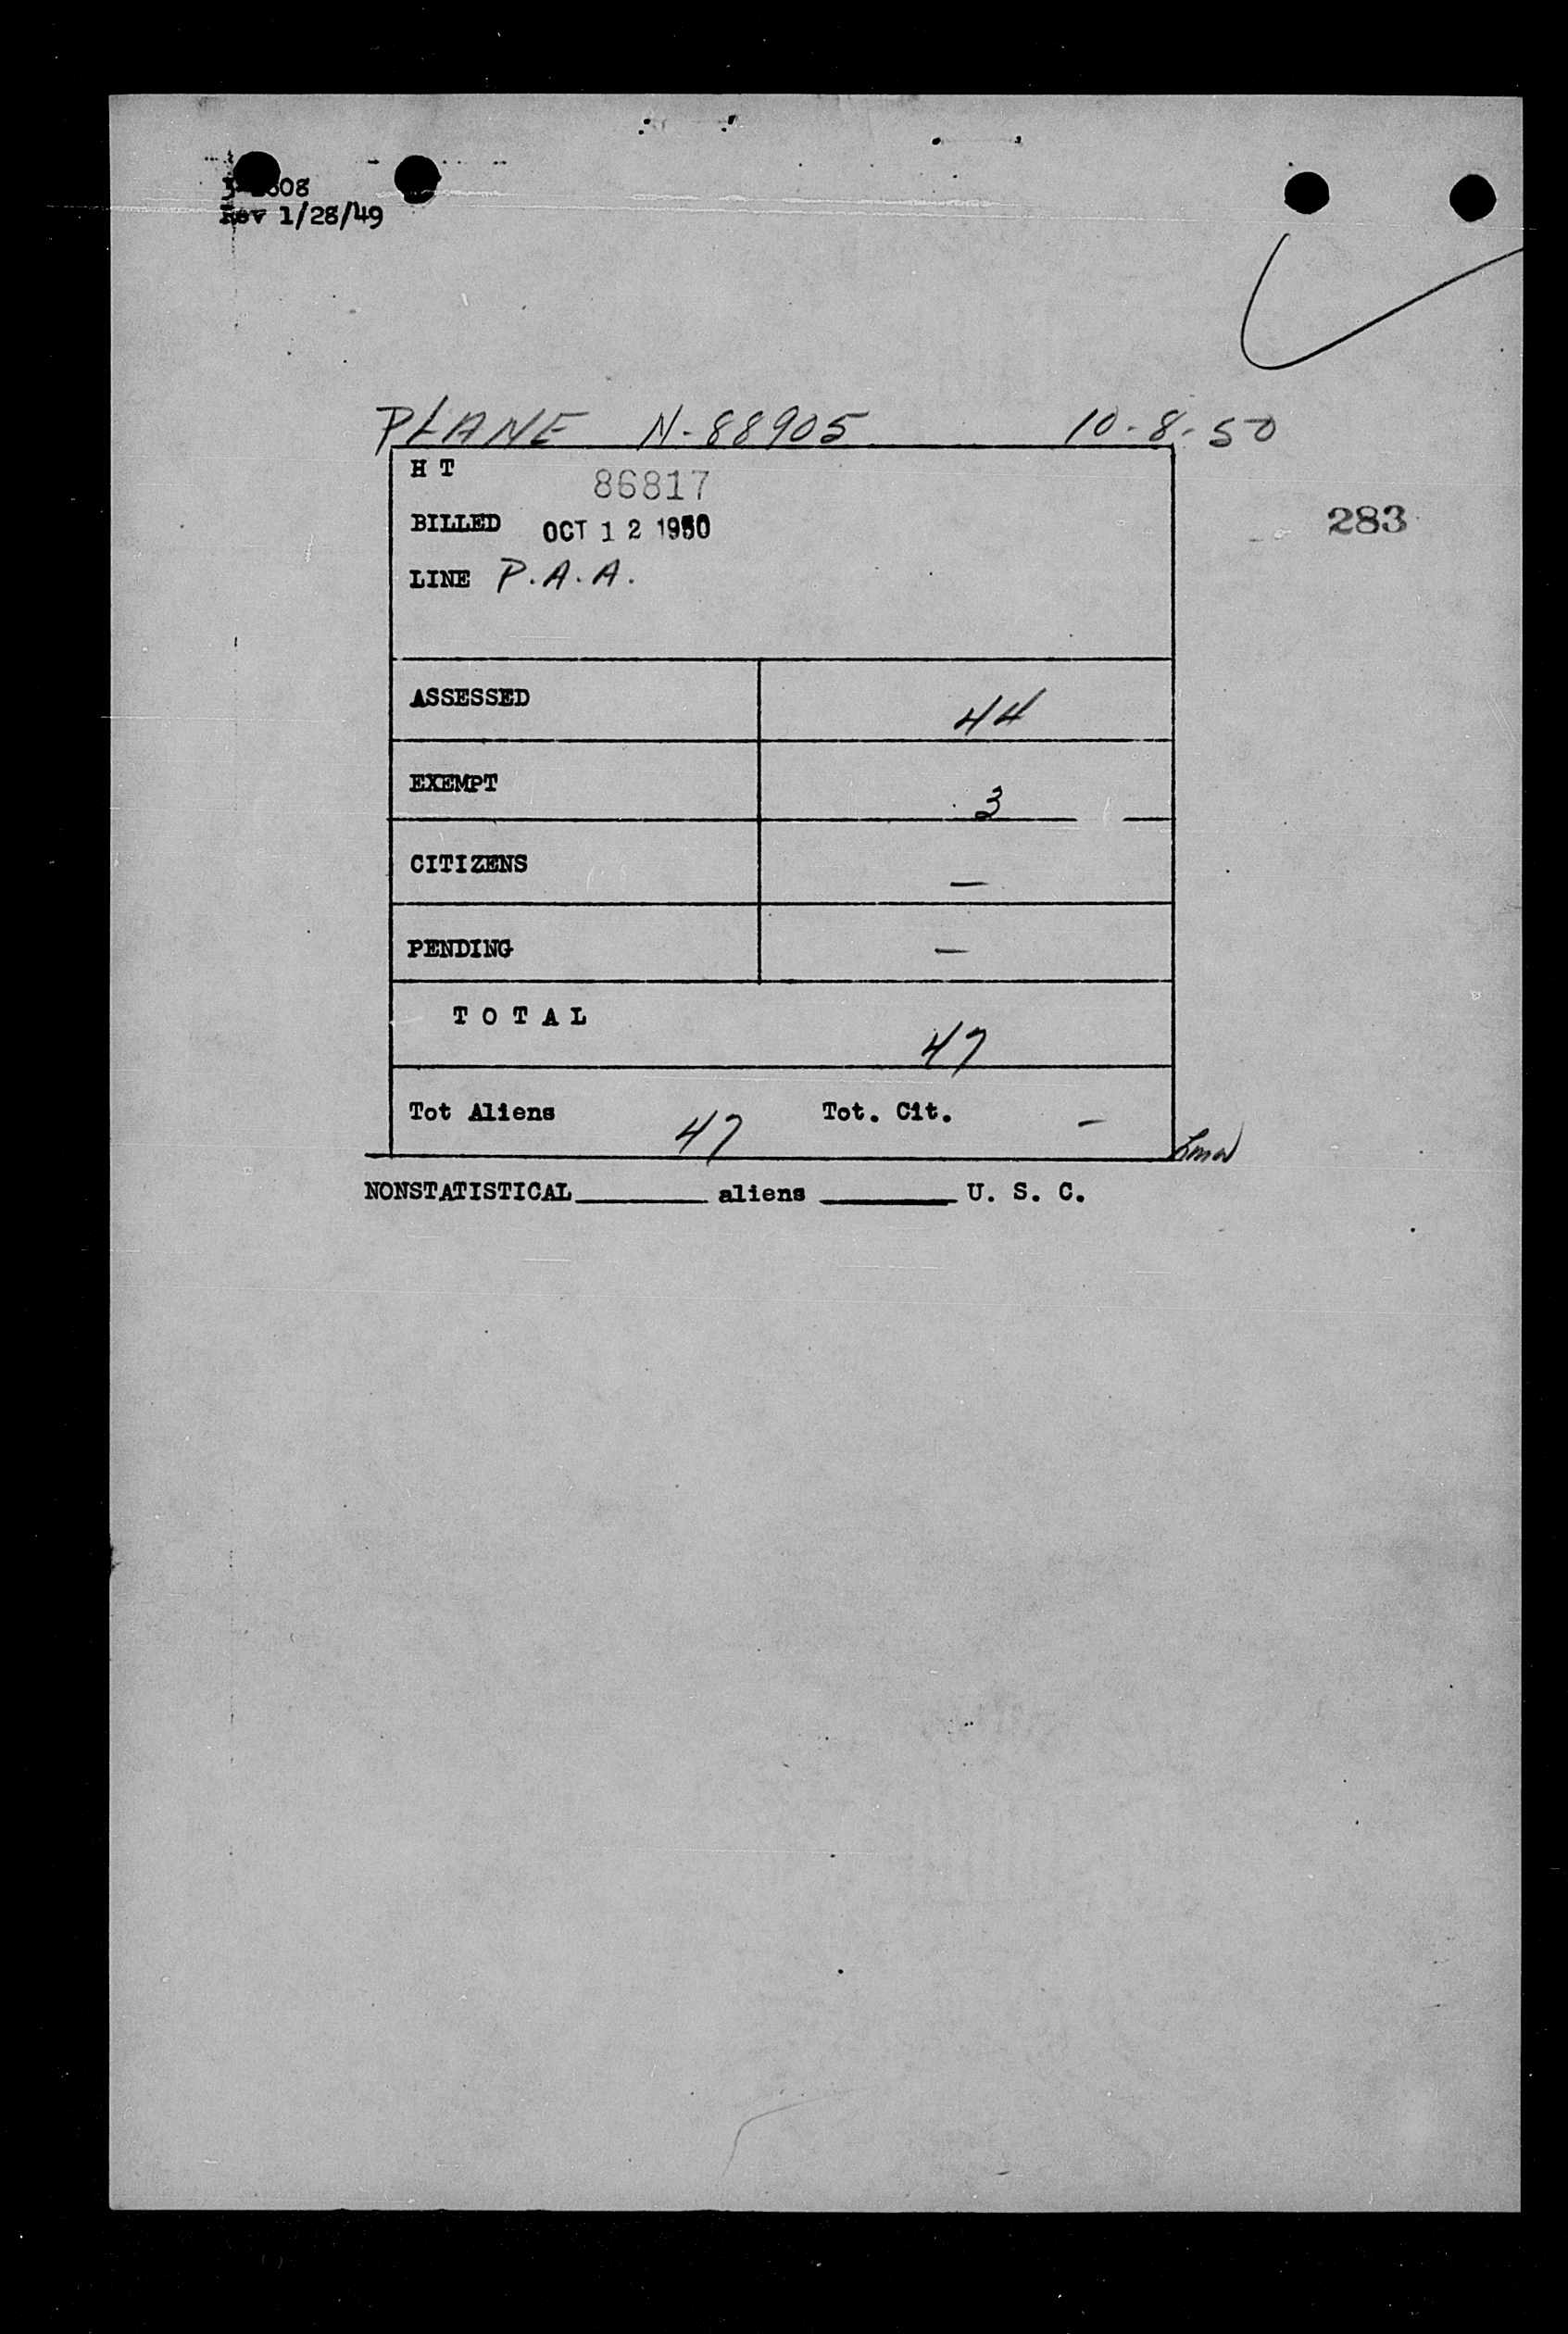 Rev 1/28/49
PLANE N-88905 10-8-50
H T
86817
BILLED OCT 12 1950
283
LINE P.A.A.
ASSESSED 44
EXEMPT 3
CITIZENS —
PENDING —
TOTAL 47
Tot Aliens 47 Tot. Cit. -
NONSTATISTICAL______ aliens ______ U. S. C.